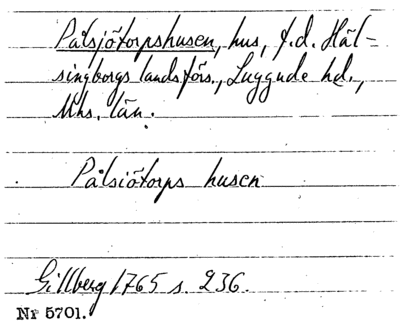 Pålsjötorpshusen, hus, f.d. Häl-
singborgs landsförs., Luggude hd.,
Mhs. län.
Pålsiötorps husen
Gillberg 1765 s. 236.
Nr 5701.